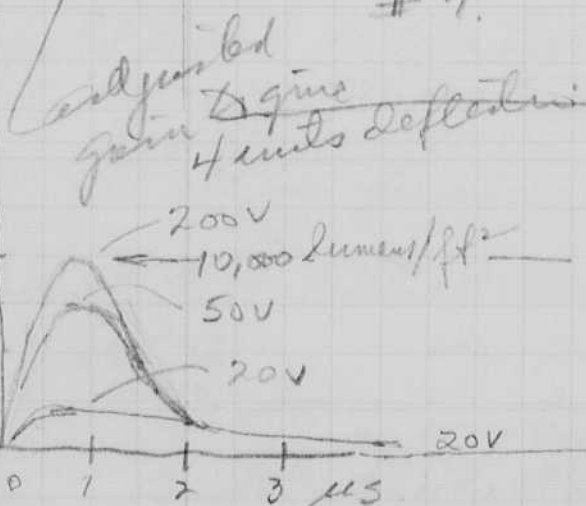 # 7.
adjusted
gain to give
4 units deflection
200V
10,000 lumens/ft²
50V
20V
20V
0 1 2 3 μs